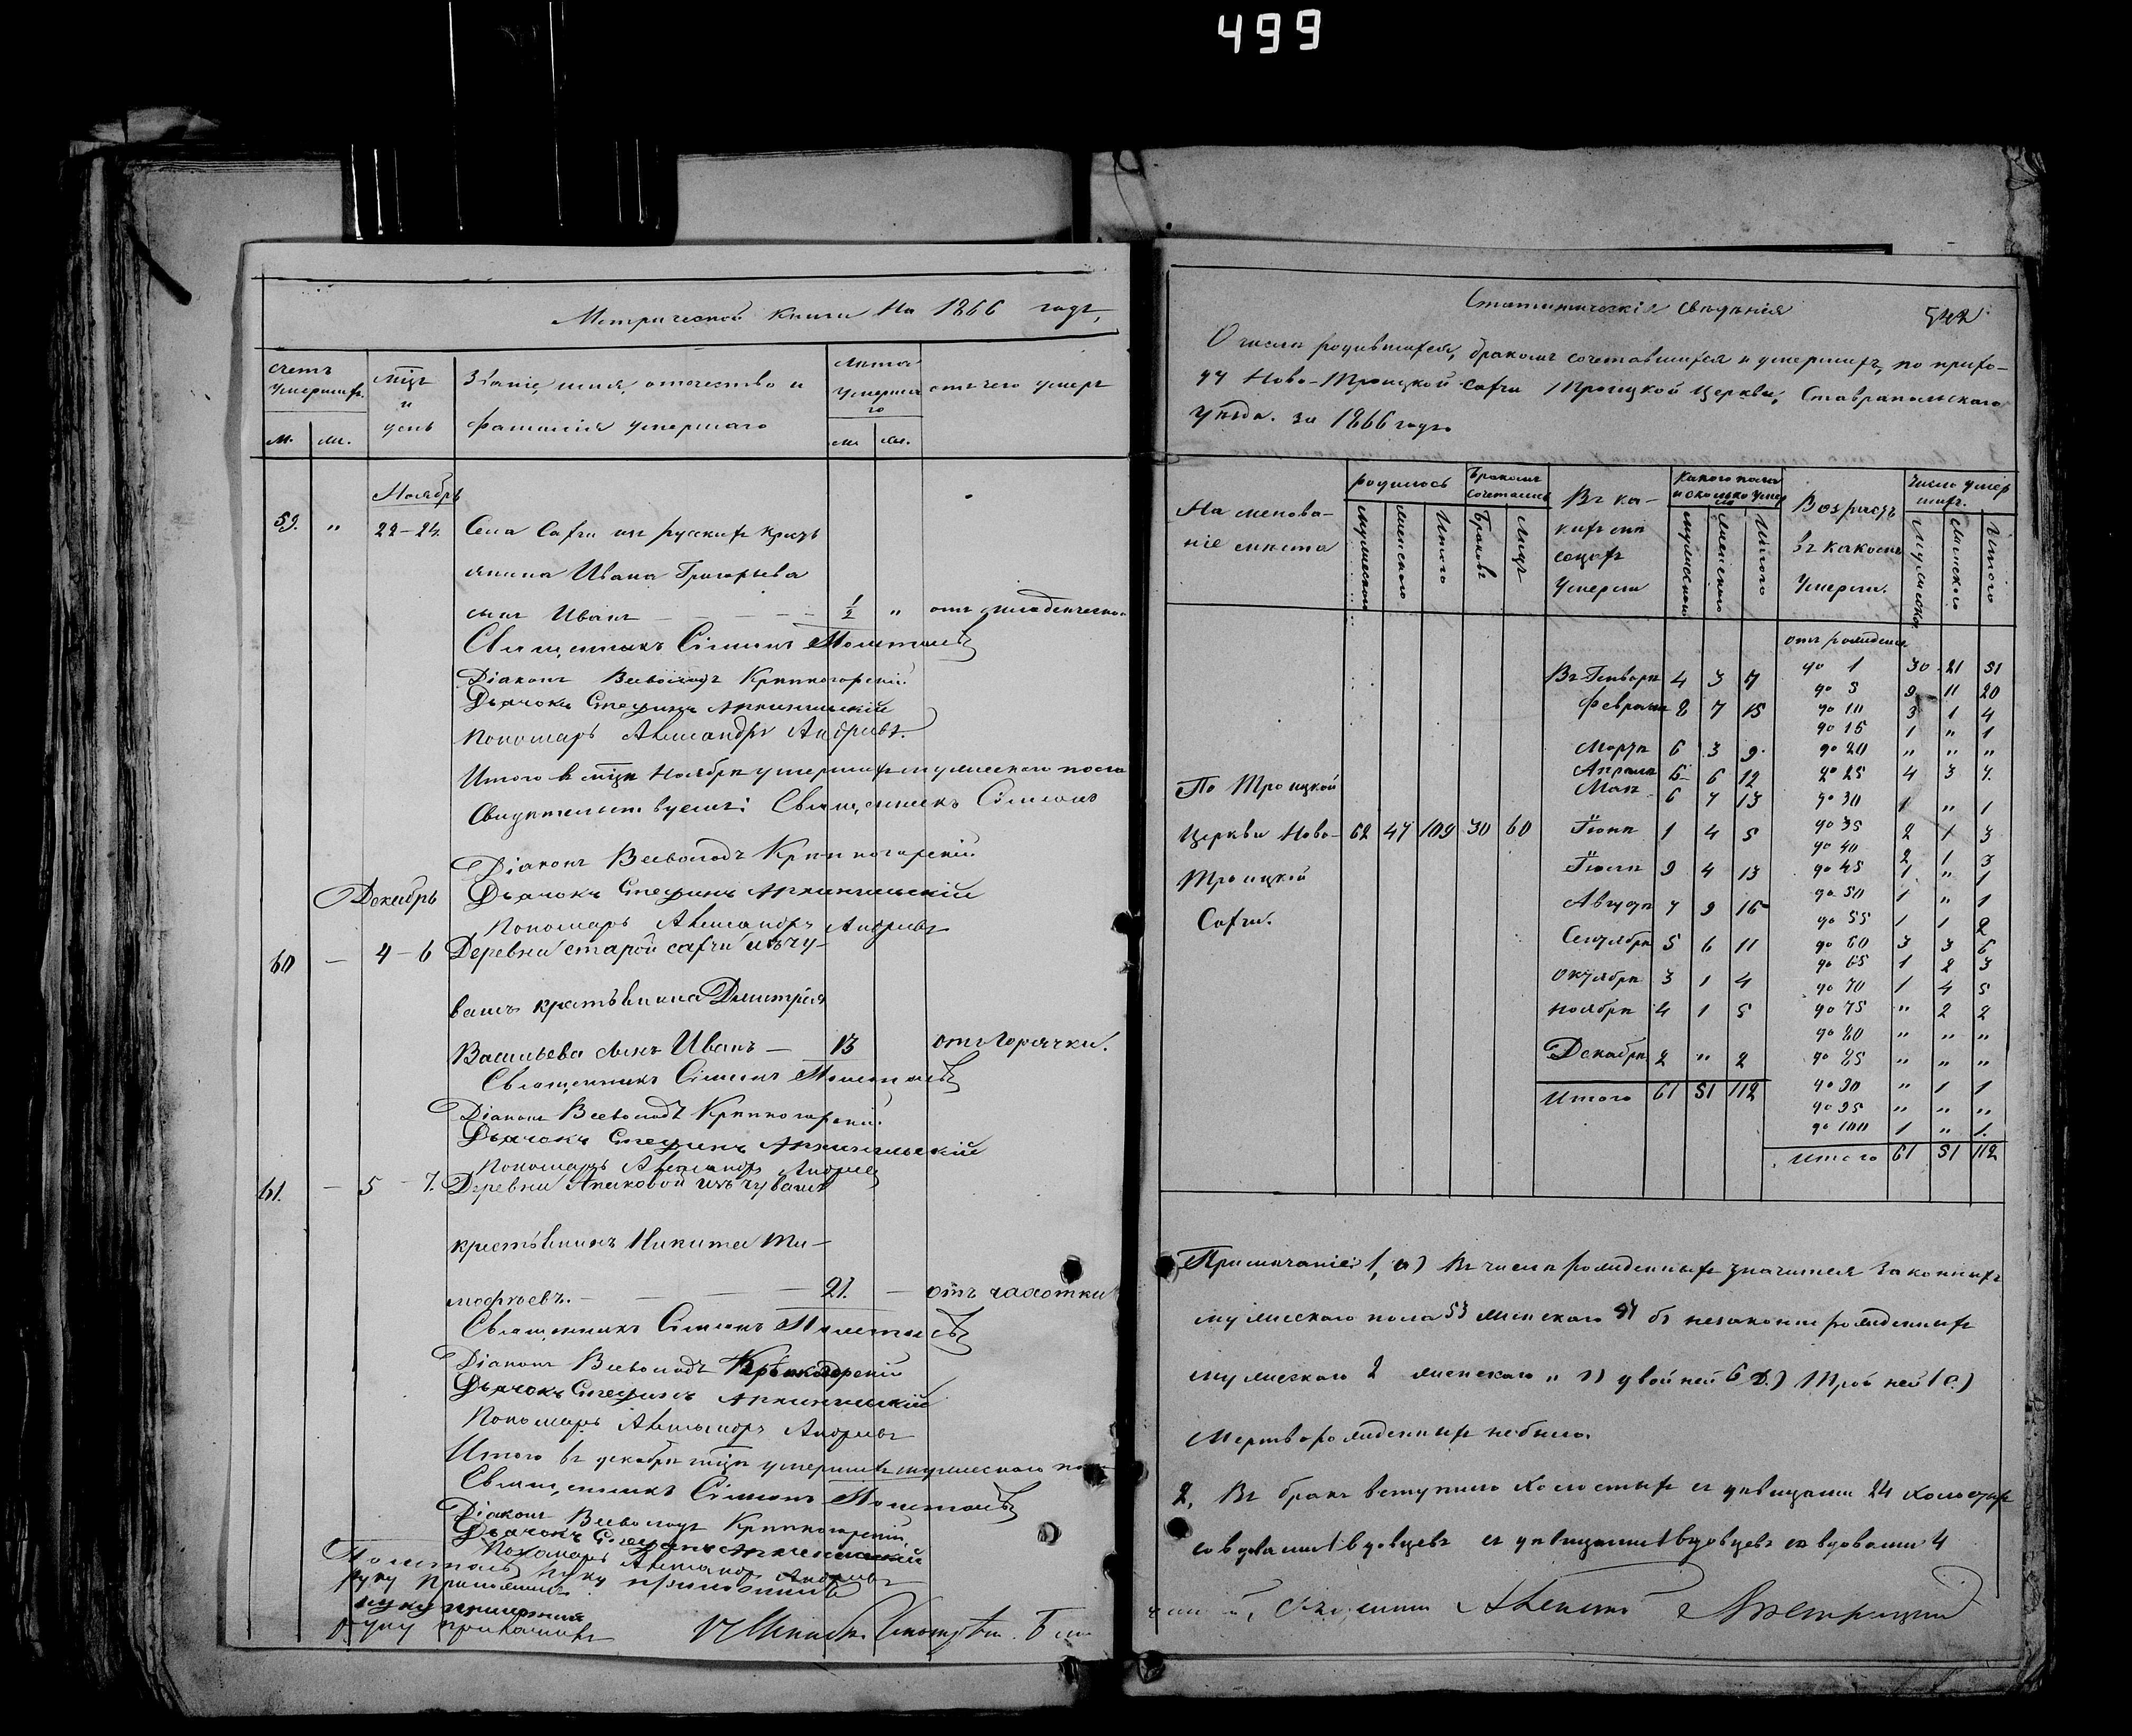 499
Метрической книги на 1866 годъ,
счетъ умершихъ.
м. | ж.
мцъ и день
Званіе, имя, отечество и фамилія умершаго
Лѣта умершаго
м | ж.
отъ чего умеръ
Ноябрь
59. " 22-24. Села Сахчи изъ русскихъ крестъ
янина Ивана Григорьева
сынъ Иванъ — — 1/2 " отъ младенческой
Священникъ Симеонъ
Діаконъ Всеволодъ Крѣпкогорскій
Дьячокъ Стефанъ Архангельскій
Пономарь Александръ Андреевъ.
Итого в мцѣ Ноябрѣ умершихъ мужескаго пола
Свидѣтельствуемъ: Священникъ Симеонъ
Діаконъ Всеволодъ Крѣпкогорскій
Дьячокъ Стефанъ Архангельскій
Декабрь
Пономарь Александръ Андреевъ
60 — 4-6 Деревни старой сахчи изъ чу-
вашъ крестьянина Димитрія
Васильева сынъ Иванъ — 13 отъ горячки.
Священникъ Симеонъ
Діаконъ Всеволодъ Крѣпкогорскій
Дьячокъ Стефанъ Архангельскій
Пономарь Александръ Андреевъ
61. — 5 - 7. Деревни изъ чувашъ
крестьянинъ Никита Ти-
мофѣевъ. — — — 21. — отъ чахотки
Священникъ Симеонъ
Діаконъ Всеволодъ Крѣпкогорскій
Дьячокъ Стефанъ Архангельскій
Пономарь Александръ Андреевъ
Итого въ декабрѣ мцѣ умершихъ мужескаго пола
Священникъ Симеонъ
Діаконъ Всеволодъ Крѣпкогорскій
Дьячокъ Стефанъ Архангельскій
Пономарь Александръ Андреевъ
руку приложилъ
руку приложилъ
руку приложилъ
Статистическія свѣденія
542
О числѣ родившихся, бракомъ сочетавшихся и умершихъ, по прихо-
ду Ново-Троицкой Сахчи Троицкой церкви, Ставропольскаго
уѣзда. за 1866 годъ.
На менова-
ніе мѣста
родилось
Мужескаго | Женскаго | Итого
Бракомъ сочетались
Браковъ | Лицъ
Въ ка-
кихъ мѣ
сяцахъ
Умерли
Какого пола и сколько умерло
Мужескаго | Женскаго | Итого
Возрастъ
въ какомъ
Умерли.
Число умер
шихъ.
Мужескаго | Женскаго | Итого
По Троицкой
Церкви Ново- 62 47 109 30 60
Троицкой
Сахчи.
Въ Генварѣ 4 3 7
Февралѣ 8 7 15
Мартѣ 6 3 9
Апрелѣ 6 6 12
Маѣ 6 7 13
Іюнѣ 1 4 5
Іюлѣ 9 4 13
Августѣ 7 9 16
Сентябрѣ 5 6 11
Октябрѣ 3 1 4
Ноябрѣ 4 1 5
Декабрѣ 2 " 2
Итого 61 51 112
отъ рожденія
до 1 30 21 51
до 5 9 11 20
до 10 3 1 4
до 15 1 " 1
до 20 " " "
до 25 4 3 7.
до 30 1 " 1
до 35 2 1 3
до 40 2 1 3
до 45 1 " 1
до 50 1 " 1
до 55 1 1 2
до 60 3 3 6
до 65 1 2 3
до 70 1 4 5
до 75 " 2 2
до 80 " " "
до 85 " " "
до 90 " 1 1
до 95 " " "
до 100 1 " 1.
Итого 61 51 112
Примѣчаніе: 1, а) Въ числѣ рожденныхъ значится законныхъ
мужескаго пола 53 женскаго 47 б) незаконно рожденныхъ
мужескаго 2 женскаго " двойней 6 Д.) Тройней 1 е.)
Мертворожденныхъ не было.
2, Въ бракъ вступило Холостыхъ съ дѣвицами 24 холостыхъ
со вдовами 1 вдовцевъ съ дѣвицами 1 вдовцевъ со вдовами 4